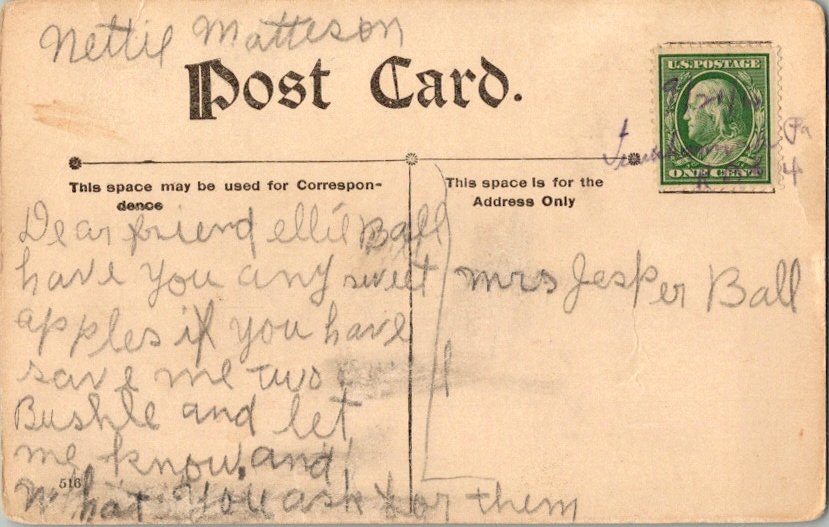 Nettie Matteson
Post Card.
U.S. POSTAGE
ONE CENT
Pa
4
This space may be used for Correspon-
dence
This space is for the
Address Only
Dear friend ellie Ball
have you any sweet
apples if you have
save me two
Bushle and let
me know, and
what you ask for them
516
mrs Jesper Ball